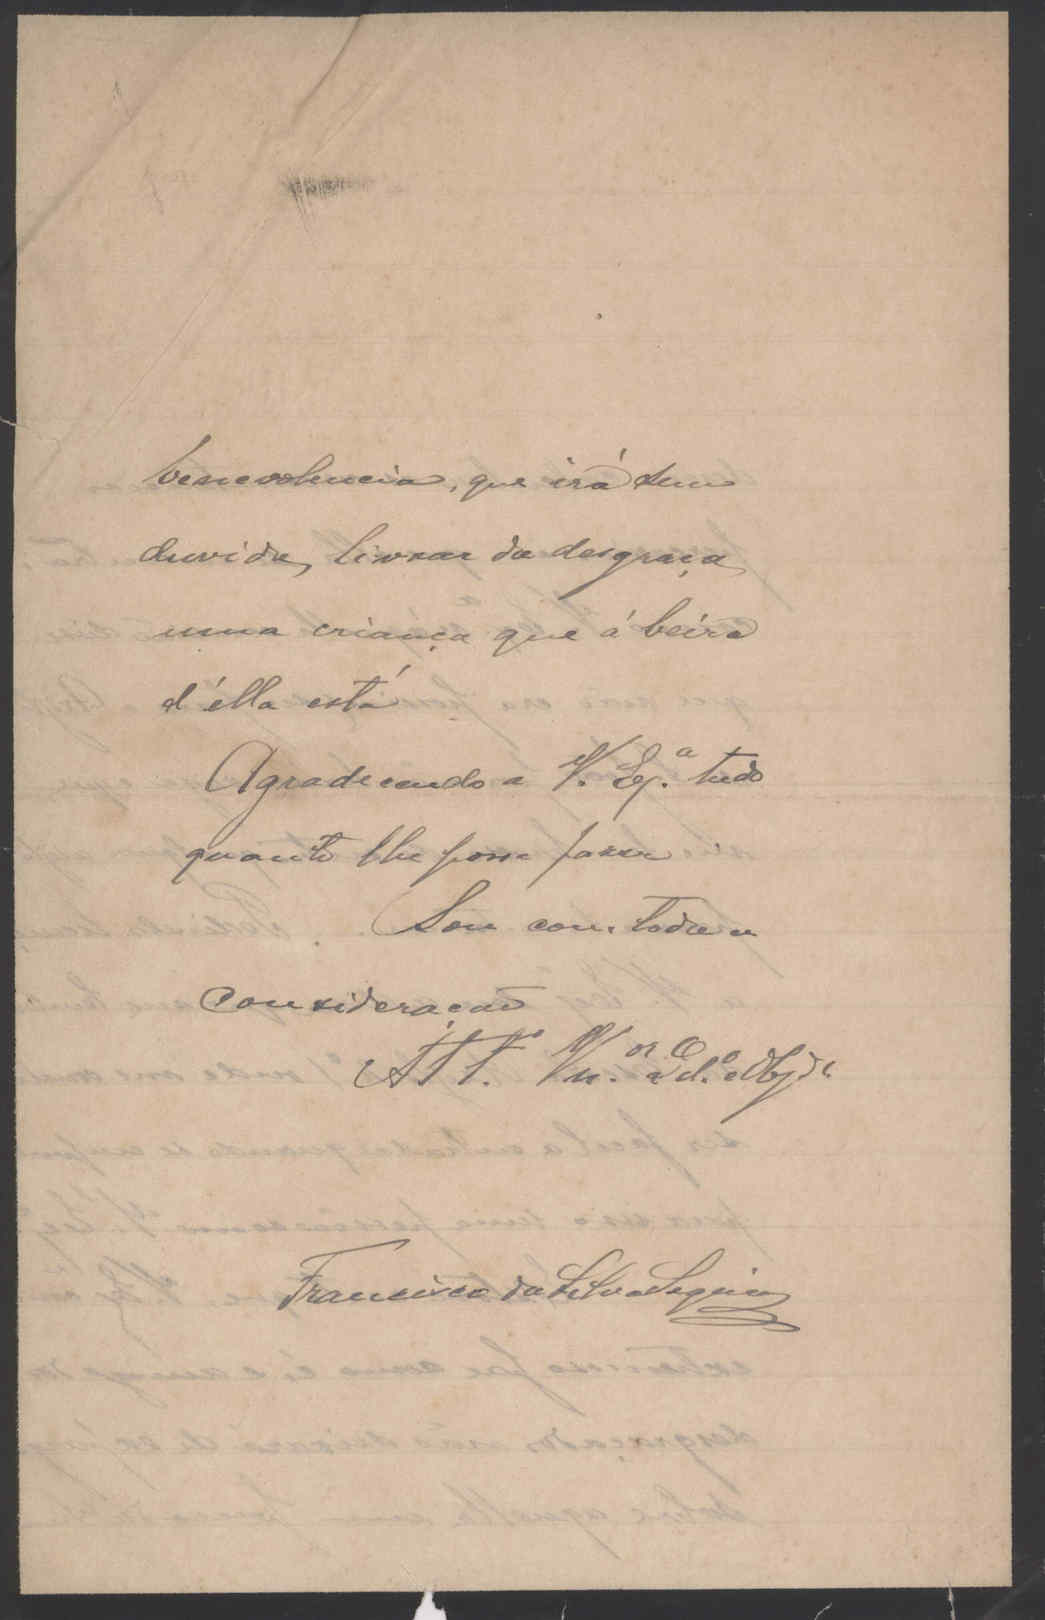 benevolencia, que irá sem
duvida, livrar da desgraça
uma criança que á beira
d'élla está
Agradecendo a V. Ex.ª tudo
quanto lhe possa fazer
Sou com toda a
consideração
Att.º Vn.or e Obg.do
Francisco da Silva